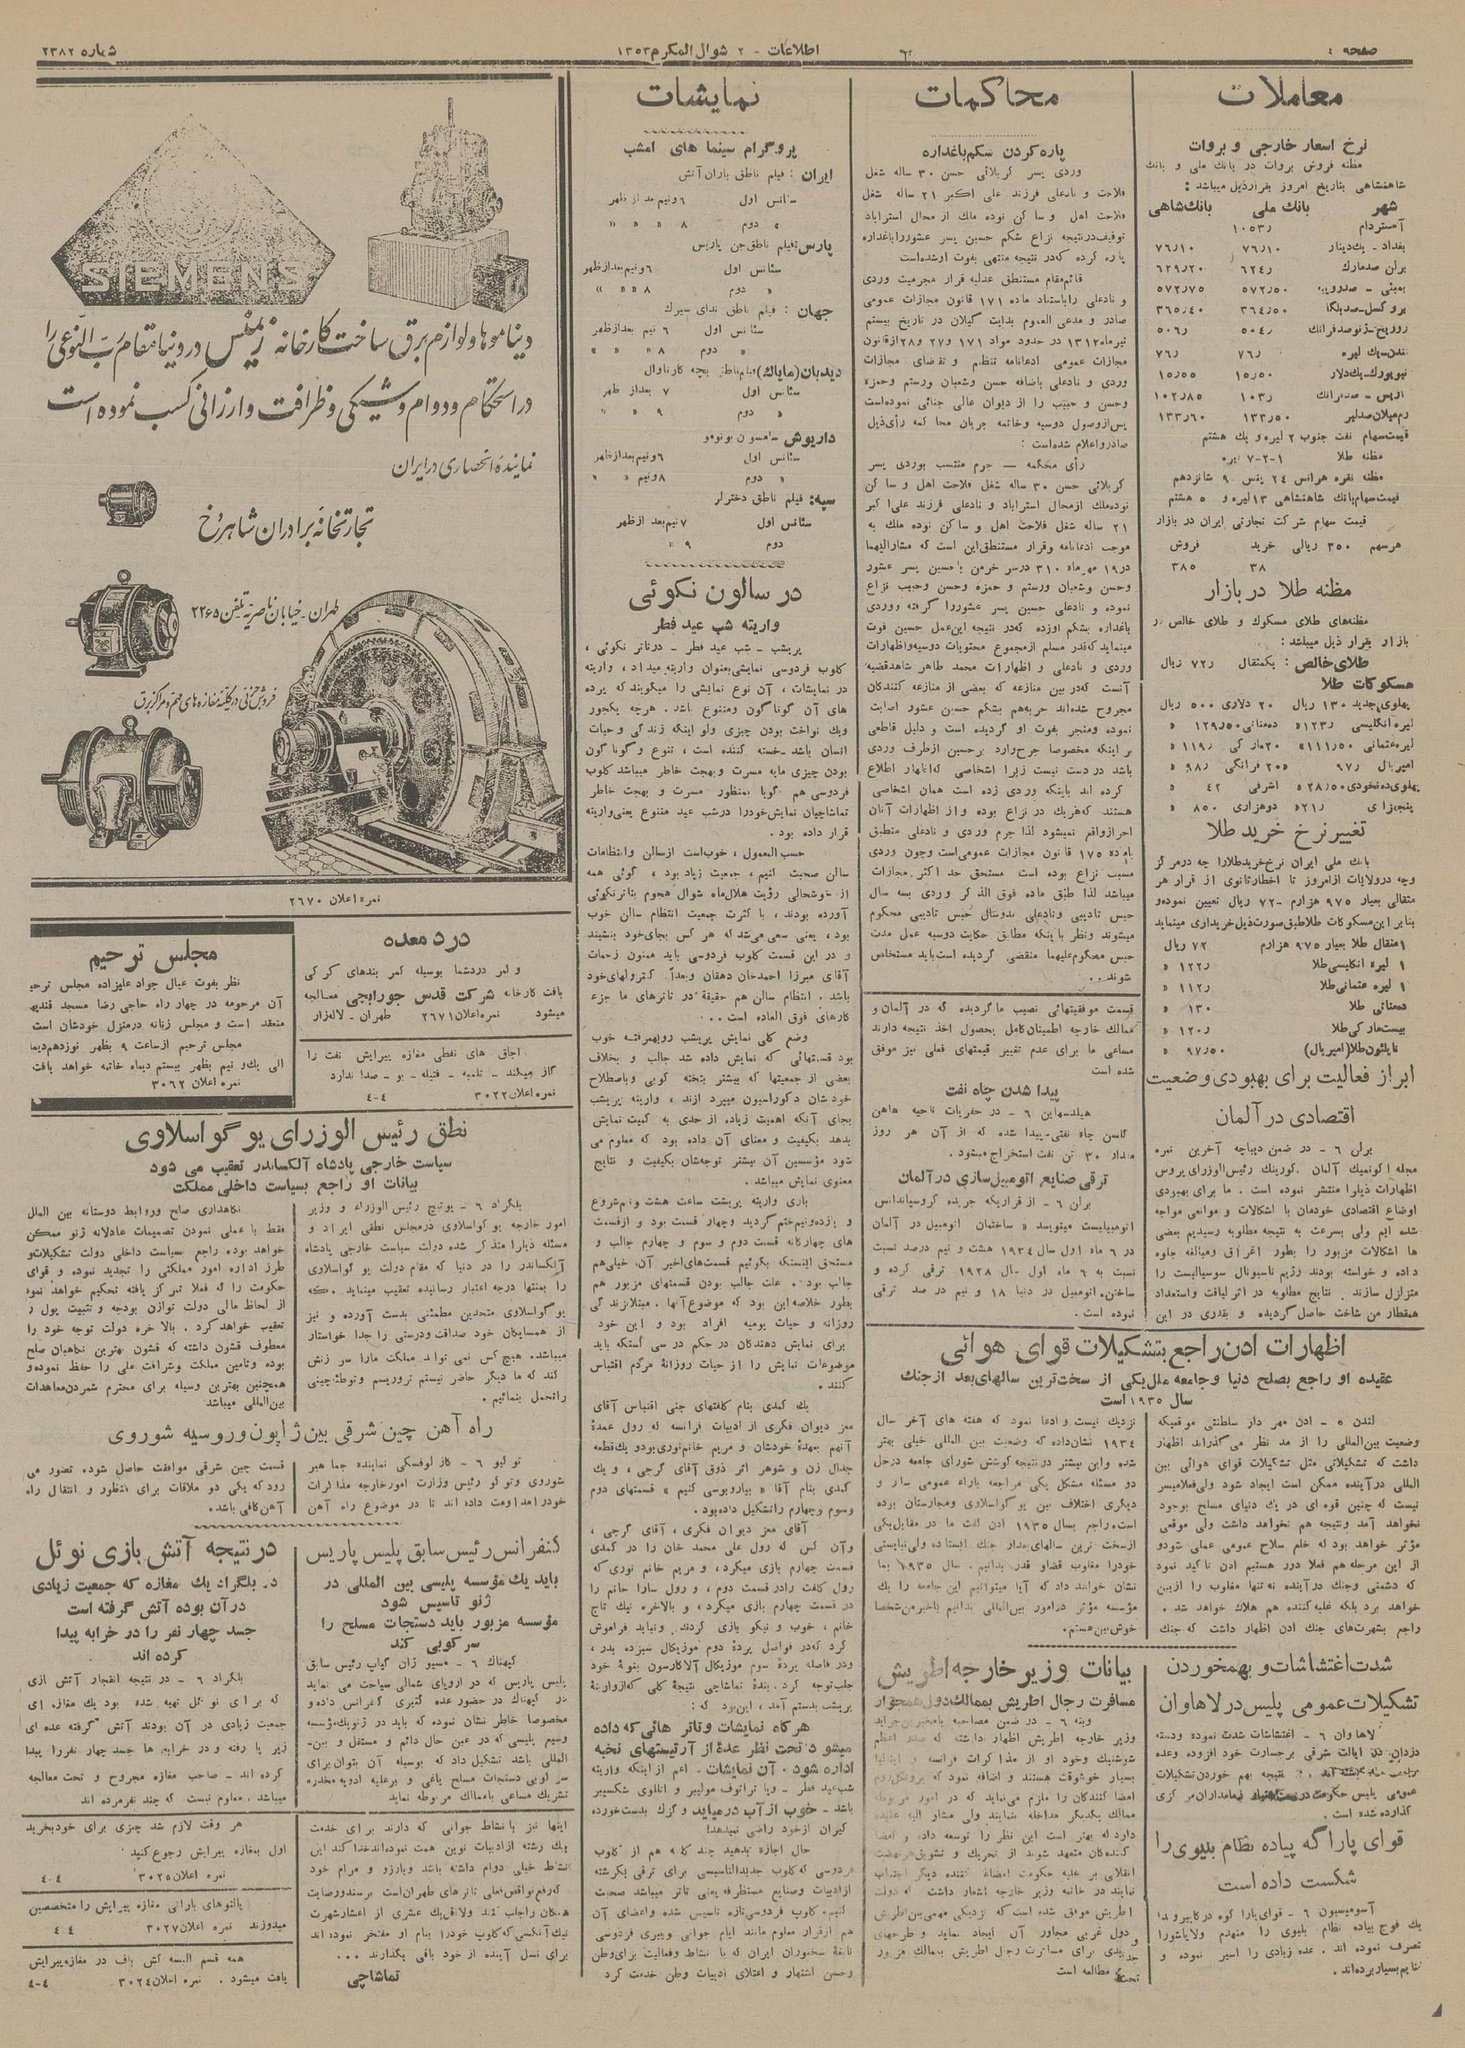 صفحه ٤
اطلاعات - ٢ شوال المکرم ١٣٥٣
شماره ٢٣٨٢
معاملات
نرخ اسعار خارجی و بروات
مظنه فروش بروات در بانك ملی و بانك
شاهنشاهی بتاریخ امروز بقرار ذیل میباشد :
شهر بانك ملی بانك شاهی
آمستردام ١٠٥٣ر
بغداد - یك دینار ٧٦ر١٠ ٧٦ر١٠
برلن صدمارك ٦٢٤ر ٦٢٩ر٢٠
بمبئی - صدروپیه ٥٧٢ر٥٠ ٥٧٢ر٧٥
بروکسل - صدبلگا ٣٦٤ر٥٠ ٣٦٥ر٤٠
٥٠٤ر ٥٠٦ر
لندن - یك لیره ٧٦ر ٧٦ر
نیویورك - یك دلار ١٥ر٥٠ ١٥ر٥٥
پاریس - صدفرانك ١٠٣ر ١٠٢ر٨٥
رم میلان صدلیر ١٣٣ر٥٠ ١٣٣ر٦٠
قیمت سهام نفت جنوب ٢ لیره و یك هشتم
مظنه طلا ١-٢-٧ لیره
مظنه نقره هر انس ٢٤ پنس ٩ شانزدهم
قیمت سهام بانك شاهنشاهی ١٣ لیره و ٥ هشتم
قیمت سهام شرکت تجارتی ایران در بازار
هر سهم ٣٥٠ ریالی خرید فروش
٣٨٥
مظنه طلا در بازار
مظنه های طلای مسکوك و طلای خالص در
بازار بقرار ذیل میباشد :
طلای خالص : یکمثقال ٧٢ر ریال
مسکوکات طلا
پهلوی جدید ١٣٠ ریال ٢٠ دلاری ٥٠٠ ریال
لیره انگلیسی ١٢٣ر» ده مناتی ١٢٩ر٥٠ »
لیره عثمانی ١١١ر٥٠» ٢٠ مارکی ١١٩ر »
امپریال ٩٧ر »٢٠ فرانکی ٩٨ر »
پهلوی ده نخودی ٢٨ر٥٠» اشرفی ٤٢ »
پنجزاری ٢١ر» دوهزاری ٨٥٠ »
تغییر نرخ خرید طلا
بانك ملی ایران نرخ خرید طلا را چه در مرکز
وچه در ولایات از امروز تا اخطار ثانوی از قرار هر
مثقالی بعیار ٩٧٥ هزارم -٧٢ ریال تعیین نموده و
بنابر این مسکوکات طلا طبق صورت ذیل خریداری مینماید
١ مثقال طلا بعیار ٩٧٥ هزارم ٧٢ ریال
١ لیره انگلیسی طلا ١٢٢ر »
١ لیره عثمانی طلا ١١٢ر »
ده مناتی طلا ١٣٠ »
بیست مارکی طلا ١٢٠ر »
ناپلئون طلا (امپریال) ٩٧ر٥٠ »
ابراز فعالیت برای بهبودی وضعیت
اقتصادی در آلمان
برلن ٦ - در ضمن دیباچه آخرین نمره
مجله اکونمیك آلمان گورینك رئیس الوزرای پروس
اظهارات ذیل را منتشر نموده است . ما برای بهبودی
اوضاع اقتصادی خودمان با اشکالات و موانعی مواجه
شده ایم ولی بسرعت به نتیجه مطلوبه رسیدیم بعضی
ها اشکالات مزبور را بطور اغراق ومبالغه جلوه
داده و خواسته بودند رژیم ناسیونال سوسیالیست را
متزلزل سازند . نتایج مطلوبه در اثر لیاقت واستعداد
همقطار من شاخت حاصل گردیده و بقدری در این
محاکمات
پاره کردن شکم با غداره
وردی پسر کربلائی حسن ٣٠ ساله شغل
فلاحت و نادعلی فرزند علی اکبر ٢١ ساله شغل
فلاحت اهل و ساکن نوده ملك از محال استراباد
توقیف در نتیجه نزاع شکم حسین پسر عشور را با غداره
پاره کرده که در نتیجه منتهی بفوت او شده است
قائم مقام مستنطق عدلیه قرار مجرمیت وردی
و نادعلی را باستناد ماده ١٧١ قانون مجازات عمومی
صادر و مدعی العموم بدایت گیلان در تاریخ بیستم
تیر ماه ١٣١٢ در حدود مواد ١٧١ و ٢٧ و ٢٨ از قانون
مجازات عمومی ادعانامه تنظیم و تقاضای مجازات
وردی و نادعلی باضافه حسن وشعبان ورستم وحمزه
وحسن و حبیب را از دیوان عالی جنائی نموده است
پس از وصول دوسیه وخاتمه جریان محاکمه رأی ذیل
صادر و اعلام شده است :
رأی محکمه - جرم منتسب بوردی پسر
کربلائی حسن ٣٠ ساله شغل فلاحت اهل و ساکن
نوده ملك از محال استراباد و نادعلی فرزند علی اکبر
٢١ ساله شغل فلاحت اهل و ساکن نوده ملك به
موجب ادعانامه وقرار مستنطق این است که مشارالیهما
در ١٩ مهر ماه ٣١٠ در سر خرمن با حسین پسر عشور
وحسن وشعبان ورستم و حمزه وحسن وحبیب نزاع
نموده و نادعلی حسین پسر عشور را گرفته و وردی
با غداره بشکم او زده که در نتیجه این عمل حسین فوت
مینماید که قدر مسلم از مجموع محتویات دوسیه و اظهارات
وردی و نادعلی و اظهارات محمد طاهر شاهد قضیه
آنست که در بین منازعه که بعضی از منازعه کنندگان
مجروح شده اند حربه هم بشکم حسین عشور اصابت
نموده ومنجر بفوت او گردیده است و دلیل قاطعی
بر اینکه مخصوصا جرح وارد بر حسین از طرف وردی
باشد در دست نیست زیرا اشخاصی که اظهار اطلاع
کرده اند باینکه وردی زده است همان اشخاصی
هستند که هر یك در نزاع بوده و از اظهارات آنان
احراز واقع نمیشود لذا جرم وردی و نادعلی منطبق
با ماده ١٧٥ قانون مجازات عمومی است وچون وردی
مسبب نزاع بوده است مستحق حد اکثر مجازات
میباشد لذا طبق ماده فوق الذکر وردی به سه سال
حبس تادیبی ونادعلی بدو سال حبس تادیبی محکوم
میشوند ونظر باینکه مطابق حکایت دوسیه عمل مدت
حبس محکوم علیهما منقضی گردیده است باید مستخلص
شوند...
قسمت موفقیتهائی نصیب ما گردیده که در آلمان و
ممالك خارجه اطمینان کامل بحصول اخذ نتیجه دارند
مساعی ما برای عدم تغییر قیمتهای فعلی نیز موفق
شده است
پیدا شدن چاه نفت
هیلدسهاین ٦ - در حفریات ناحیه هاهن
گاسن چاه نفتی پیدا شده که از آن هر روز
مقدار ٣٠ تن نفت استخراج میشود .
ترقی صنایع اتومبیل سازی در آلمان
برلن ٦ - از قراریکه جریده کروسیاندانس
اتومبیلیست مینویسد » ساختمان اتومبیل در آلمان
در ٦ ماه اول سال ١٩٣٤ هشت و نیم درصد نسبت
نسبت به ٦ ماه اول سال ١٩٢٨ ترقی کرده و
ساختن اتومبیل در دنیا ١٨ و نیم در صد ترقی
نموده است .
اظهارات ادن راجع بتشکیلات قوای هوائی
عقیده او راجع بصلح دنیا وجامعه ملل یکی از سخت ترین سالهای بعد از جنك
سال ١٩٣٥ است
لندن ٥ - ادن مهر دار سلطنتی موقعیکه
وضعیت بین المللی را از مد نظر می گذراند اظهار
داشت که تشکیلاتی مثل تشکیلات قوای هوائی بین
المللی در آینده ممکن است ایجاد شود ولی فعلا میسر
نیست که چنین قوه ای در یك دنیای مسلح بوجود
نخواهد آمد ونتیجه هم نخواهد داشت ولی موقعی
مؤثر خواهد بود که خلع سلاح عمومی عملی شود و
از این مرحله هم فعلا دور هستیم ادن تاکید نمود
که دشمنی وجنك در آینده نه تنها مغلوب را از بین
خواهد برد بلکه غلبه کننده هم هلاك خواهد شد .
راجع بشهرتهای جنك ادن اظهار داشت که جنك
نزدیك نیست و ادعا نمود که هفته های آخر سال
١٩٣٤ نشان داده که وضعیت بین المللی خیلی بهتر
شده و این بیشتر در نتیجه کوشش شورای جامعه در حل
دو مسئله مشکل یکی مراجعه بآراء عمومی سار و
دیگری اختلاف بین یوگواسلاوی ومجارستان بوده
است . راجع بسال ١٩٣٥ ادن گفت ما در مقابل یکی
از سخت ترین سالهای بعد از جنك ایستاده ولی نبایستی
خود را مغلوب قضا و قدر بدانیم . سال ١٩٣٥ بما
نشان خواهد داد که آیا میتوانیم این جامعه را یك
مؤسسه مؤثر در امور بین المللی بدانیم یا خیر من شخصا
خوش بین هستم .
شدت اغتشاشات و بهم خوردن
تشکیلات عمومی پلیس در لاهاوان
لاهاوان ٦ - اغتشاشات شدت نموده ودسته
دزدان ایالت شرقی بر جسارت خود افزوده وعده
نتیجه بهم خوردن تشکیلات
گذارده شده است .
قوای پاراگه پیاده نظام بلیوی را
شکست داده است
آسومپسیون ٦ - قوای پاراگوه در کایپرو ندا
یك فوج پیاده نظام بلیوی را منهدم ویلاپاشورا
تصرف نموده اند . عده زیادی را اسیر نموده و
غنایم بسیار برده اند .
بیانات وزیر خارجه اطریش
مسافرت رجال اطریش بممالك دول همجوار
وینه ٦ - در ضمن مصاحبه با مخبرین جراید
وزیر خارجه اطریش اظهار داشته که صدر اعظم
شوشنیك وخود او از مذاکرات فرانسه و ایتالیا
بسیار خوشوقت هستند و اضافه نمود که پروتکل رم
امضا کنندگان را ملزم مینماید که در امور مربوطه
ممالك یکدیگر مداخله ننمایند ولی مشار الیه عقیده
دارد که بهتر است این نظر را توسعه داده و امضا
کنندگان متعهد شوند از تحریك و تشویق هر نهضت
انقلابی بر علیه حکومت امضاء کننده دیگر اجتناب
نمایند در خاتمه وزیر خارجه اشعار داشت که دولت
اطریش موفق شده است که نزدیکی مهمی بین اطریش
و دول غربی مجاور آن ایجاد نماید و طرحهای
جدیدی برای مسافرت رجال اطریش بممالك مزبور
تحت مطالعه است
نمایشات
پروگرام سینماهای امشب
ایران : فیلم ناطق باران آتش
سئانس اول ٦ ونیم بعد از ظهر
» دوم ٨ » » »
پارس : فیلم ناطق جن پاریس
سئانس اول ٦ ونیم بعد از ظهر
» دوم ٨ » » »
جهان : فیلم ناطق ندای سیرك
سئانس اول ٦ نیم بعد از ظهر
» دوم ٨ » » »
دیدبان (مایاك) فیلم ناطق بچه کارناوال
سئانس اول ٧ بعد از ظهر
» دوم ٩ » »
داریوش سامسون بونومو
سئانس اول ٦ ونیم بعد از ظهر
» دوم ٨ ونیم » »
سپه : فیلم ناطق دختر لر
سئانس اول ٧ نیم بعد از ظهر
دوم ٩ »
در سالون نکوئی
واریته شب عید فطر
پریشب - شب عید فطر - در تاتر نکوئی ،
کلوب فردوسی نمایشی بعنوان واریته میداد ، واریته
در نمایشات ، آن نوع نمایشی را میگویند که پرده
های آن گوناگون ومتنوع باشد . هر چه یکجور
ویك نواخت بودن چیزی ولو اینکه زندگی و حیات
انسان باشد خسته کننده است ، تنوع وگوناگون
بودن چیزی مایه مسرت وبهجت خاطر میباشد کلوب
فردوسی هم گویا بمنظور مسرت و بهجت خاطر
تماشاچیان نمایش خود را در شب عید متنوع یعنی واریته
قرار داده بود .
حسب المعمول ، خوب است از سالن وانتظامات
سالن صحبت کنیم ، جمعیت زیاد بود ، گوئی همه
از خوشحالی رؤیت هلال ماه شوال هجوم بتاتر نکوئی
آورده بودند ، با کثرت جمعیت انتظام سالن خوب
بود ، یعنی سعی می شد که هر کس بجای خود بنشیند
و در این قسمت کلوب فردوسی باید ممنون زحمات
آقای میرزا احمدخان دهقان وبعداً کنترلهای خود
باشد . انتظام سالن هم حقیقة در تاترهای ما جزء
کارهای فوق العاده است ...
وضع کلی نمایش پریشب رویهمرفته خوب
بود قسمتهائی که نمایش داده شد جالب و بخلاف
بعضی از جمعیتها که بیشتر بتخته کوبی وباصطلاح
خودشان دکوراسیون میپردازند ، واریته پریشب
بجای آنکه اهمیت زیاده از حدی به کمیت نمایش
بدهد بکیفیت و معنای آن داده بود که معلوم می
شود مؤسسین آن بیشتر توجه شان بکیفیت و نتایج
معنوی نمایش میباشد .
باری واریته پریشب ساعت هشت ونیم شروع
و یازده ونیم ختم گردید وچهار قسمت بود و از قسمت
های چهارگانه قسمت دوم و سوم و چهارم جالب و
مستحق اینستکه بگوئیم قسمتهای اخیر آن خیلی هم
جالب بود . علت جالب بودن قسمتهای مزبور هم
بطور خلاصه این بود که موضوع آنها ، مبتلابه زندگی
روزانه و حیات یومیه افراد بود و این خود
برای نمایش دهندگان در حکم درسی است که باید
موضوعات نمایش را از حیات روزانهٔ مردم اقتباس
کنند .
یك کمدی بنام کلفتهای جنی اقتباس آقای
معز دیوان فکری از ادبیات فرانسه که رول عمدهٔ
آنهم بعهدهٔ خودشان و مریم خانم نوری بود و یك قطعه
جدال زن و شوهر اثر ذوق آقای گرجی ، و یك
کمدی بنام آقا » بیاروبوسی کنیم » قسمتهای دوم
وسوم وچهارم را تشکیل داده بود .
آقای معز دیوان فکری ، آقای گرجی ،
وآن کس که رول علی محمد خان را در کمدی
قسمت چهارم بازی میکرد ، و مریم خانم نوری که
رول کلفت را در قسمت دوم ، و رول سارا خانم را
در قسمت چهارم بازی میکرد ، و بالاخره نیك تاج
خانم ، خوب و نیکو بازی کردند ونباید فراموش
کرد که در فواصل پردهٔ دوم موزیکال سیزده پدر ،
ودر فاصله پردهٔ سوم موزیکال آلاکارسون بنوبهٔ خود
جلب توجه کرد . بندهٔ تماشاچی نتیجهٔ کلی که از واریتهٔ
پریشب بدستم آمد ، این بود که :
هر گاه نمایشات وتاتر هائی که داده
میشود تحت نظر عدهٔ از آرتیستهای نخبه
اداره شود ، آن نمایشات - اعم از اینکه واریته
شب عید فطر - ویا تراتوف مولییر و اتللوی شکسپیر
باشد - خوب از آب درمیاید و گرك بدست خورده
گیران از خود راضی نمیدهد !
حال اجازه بدهید چند کلمه هم از کلوب
فردوسی که کلوب جدیدالتاسیسی برای ترقی یك رشته
از ادبیات وصنایع مستظرفه یعنی تاتر میباشد صحبت
کنیم . کلوب فردوسی تازه تاسیس شده و اعضای آن
هم از قرار معلوم مانند ایام جوانی وپیری فردوسی
نابغهٔ سخنوران ایران که با نشاط وفعالیت برای وطن
وحسن اشتهار و اعتلای ادبیات وطن خدمت کرد
اینها نیز با نشاط جوانی که دارند برای خدمت
بیك رشته از ادبیات نوین همت نموده اند خدا کند این
نشاط خیلی دوام داشته باشد وبارزو و مرام خود
که رفع نواقص فعلی تاتر های طهران است برسند ورضایت
همکان را جلب کنند ولااقل یك عشری از اعشار شهرت
نیك آنکسی که کلوب خود را بنام او مفتخر نموده اند
برای نسل آینده از خود باقی بگذارند ...
تماشاچی
SIEMENS
دینامو ها و لوازم برق ساخت کارخانه زیمنس در دنیا مقام رب النوعی را
در استحکام و دوام و شیکی و ظرافت و ارزانی کسب نموده است
نماینده انحصاری در ایران
تجارتخانه برادران شاهرخ
طهران - خیابان ناصریه تلفن ٢٢٦٥
فروش جزئی در کلیه مغازه های مهم و مراکز برق
نمره اعلان ٢٦٧٠
درد معده
و کمر دردشما بوسیله کمر بندهای کرکی
بافت کارخانه شرکت قدس جورابچی معالجه
میشود نمره اعلان ٢٦٧١ طهران - لاله زار
اجاق های نفطی مغازه پیرایش نفت را
گاز میکند - تلمبه - فتیله - بو - صدا ندارد
نمره اعلان ٣٠٢٢ ٤-٤
مجلس ترحیم
نظر بفوت عیال جواد علیزاده مجلس ترحیم
آن مرحومه در چهار راه حاجی رضا مسجد قندی
منعقد است و مجلس زنانه در منزل خودشان است
مجلس ترحیم از ساعت ٩ بظهر نوزدهم دیماه
الی یك و نیم بظهر بیستم دیماه خاتمه خواهد یافت
نمره اعلان ٣٠٦٢
نطق رئیس الوزرای یوگواسلاوی
سیاست خارجی پادشاه آلکساندر تعقیب می شود
بیانات او راجع بسیاست داخلی مملکت
بلگراد ٦ - یوتیچ رئیس الوزراء و وزیر
امور خارجه یوگواسلاوی در مجلس نطقی ایراد و
مسئله ذیل را متذکر شده دولت سیاست خارجی پادشاه
آلکساندر را در دنیا که مقام دولت یوگواسلاوی
را بمنتها درجه اعتبار رسانیده تعقیب مینماید . که
یوگواسلاوی متحدین مطمئنی بدست آورده و نیز
از همسایگان خود صداقت و درستی را جدا خواستار
میباشد . هیچ کس نمی تواند مملکت ما را سرزنش
کند که ما دیگر حاضر نیستم تروریسم وتوطئه چینی
را تحمل بنمائیم .
نگاهداری صلح وروابط دوستانه بین الملل
فقط با عملی نمودن تصمیمات عادلانه ژنو ممکن
خواهد بود . راجع بسیاست داخلی دولت تشکیلات و
طرز اداره امور مملکتی را تجدید نموده و قوای
حکومت را که فعلا تمرکز یافته تحکیم خواهد نمود
از لحاظ مالی دولت توازن بودجه و تثبیت پول را
تعقیب خواهد کرد . بالاخره دولت توجه خود را
معطوف قشون داشته که قشون بهترین نگاهبان صلح
بوده وتامین مملکت وشرافت ملی را حفظ نموده و
همچنین بهترین وسیله برای محترم شمردن معاهدات
بین المللی میباشد
راه آهن چین شرقی بین ژاپون و روسیه شوروی
توکیو ٦ - کازلوفسکی نماینده جماهیر
شوروی وتوگو رئیس وزارت امور خارجه مذاکرات
خود را مداومت داده اند تا در موضوع راه آهن
قسمت چین شرقی موافقت حاصل شود . تصور می
رود که یکی دو ملاقات برای منظور و انتقال راه
آهن کافی باشد .
کنفرانس رئیس سابق پلیس پاریس
باید یك مؤسسه پلیسی بین المللی در
ژنو تاسیس شود
مؤسسه مزبور باید دستجات مسلح را
سرکوبی کند
کپنهاك ٦ - مسیو ژان کیاپ رئیس سابق
پلیس پاریس که در اروپای شمالی سیاحت می نماید
در کپنهاك در حضور عده کثیری کنفرانس داده و
مخصوصا خاطر نشان نموده که باید در ژنو یك مؤسسه
وسیع پلیسی که در عین حال دائم و مستقل و بین-
المللی باشد تشکیل داد که بوسیله آن بتوان برای
سرکوبی دستجات مسلح یاغی و برعلیه ادویه مخدره
تشریك مساعی با ممالك مربوطه نماید
در نتیجه آتش بازی نوئل
در بلگراد یك مغازه که جمعیت زیادی
در آن بوده آتش گرفته است
جسد چهار نفر را در خرابه پیدا
کرده اند
بلگراد ٦ - در نتیجه انفجار آتش بازی
که برای نوئل تهیه شده بود یك مغازه ای
جمعیت زیادی در آن بودند آتش گرفته عده ای
زیر پا رفته و در خرابه ها جسد چهار نفر را پیدا
کرده اند - صاحب مغازه مجروح و تحت معالجه
میباشد . معلوم نیست که چند نفر مرده اند
هر وقت لازم شد چیزی برای خود بخرید
اول بمغازه پیرایش رجوع کنید
نمره اعلان ٣٠٢٥ ٤-٤
پالتوهای بارانی مغازه پیرایش را متخصصین
میدوزند نمره اعلان ٣٠٢٧ ٤-٤
همه قسم البسه کش باف در مغازه پیرایش
یافت میشود . نمره اعلان ٣٠٢٤ ٤-٤